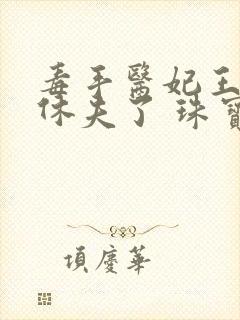 毒手醫妃王
休夫了 珠寶
項慶華